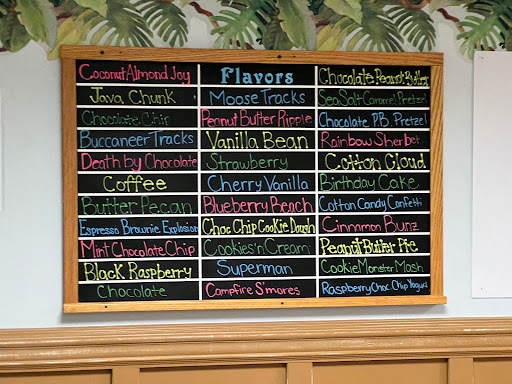 Coconut Almond Joy
Java Chunk
Chocolate Chip
Buccaneer Tracks
Death by Chocolate
Coffee
Butter Pecan
Espresso Brownie Explosion
Mint Chocolate Chip
Black Raspberry
Chocolate
Flavors
Moose Tracks
Peanut Butter Ripple
Vanilla Bean
Strawberry
Cherry Vanilla
Blueberry Beach
Choc Chip Cookie Doush
Cookies'n Cream
Superman
Campfire S'mores
Chocolate Peanut Butter
Sea Salt Caramel Pretzel
Chocolate P.B. Pretzel
Rainbow Sherbet
Cotton Cloud
Birthday Cake
Cotton Candy Confetti
Cinnamon Bunz
Peanut Butter Pie
Cookie Monster Mash
Raspberry Choc Chip Yogurt